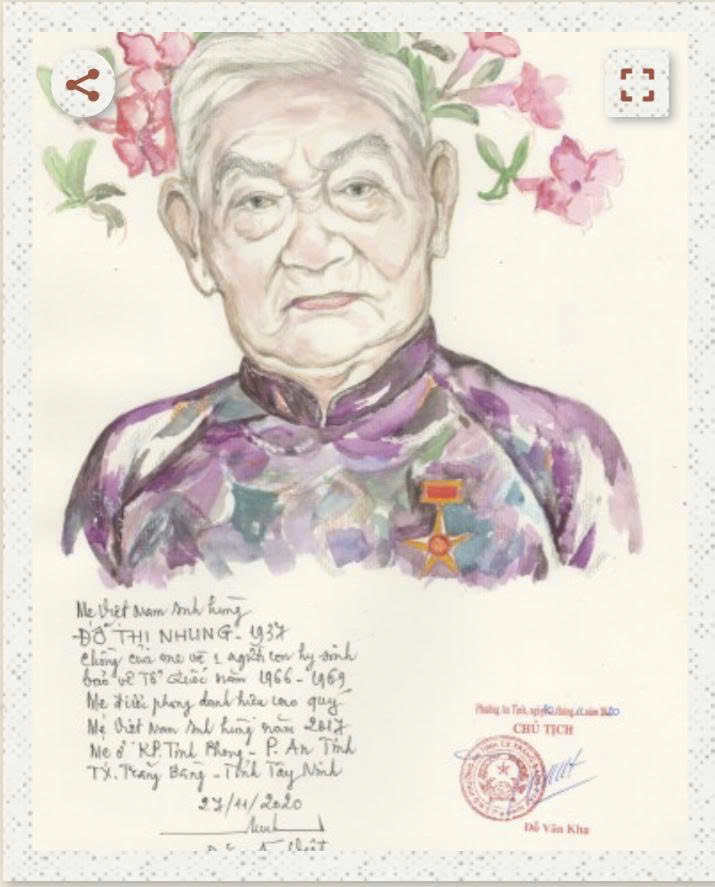 Mẹ Việt Nam Anh hùng
ĐỖ THỊ NHUNG - 1937
Chồng của mẹ và 1 người con hy sinh
bảo vệ Tổ Quốc năm 1966 - 1969
Mẹ được phong danh hiệu cao quý
Mẹ Việt Nam Anh hùng năm 2017
Mẹ ở KP. Tịnh Phong - P. An Tịnh
TX. Trảng Bàng - Tỉnh Tây Ninh
27/11/2020
Phường An Tịnh, ngày tháng 11 năm 2020
CHỦ TỊCH
Đỗ Văn Kha